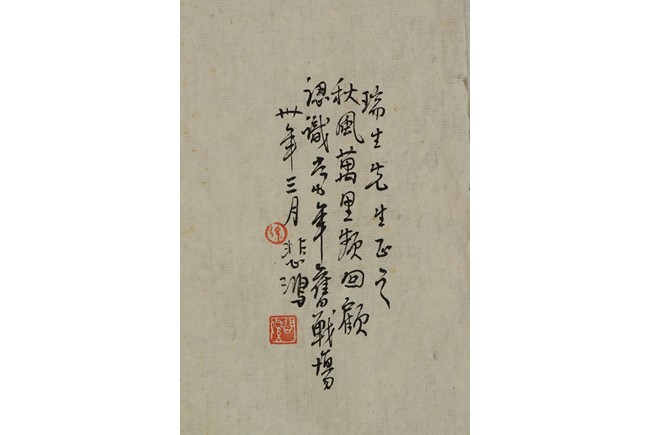 瑞生先生正之
秋風萬里頻回顧
認識當年舊戰場
卅年三月
悲鴻
徐